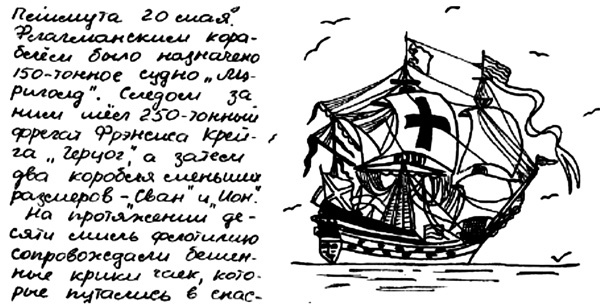 Плимута 20 мая.
Флагманским кора-
блём было назначено
150-тонное судно „Мэ-
риголд". Следом за
ним шёл 250-тонный
фрегат Фрэнсиса Крей-
га „Герцог", а затем
два корабля меньших
размеров - „Сван" и „Ион".
На протяжении де-
сяти миль флотилию
сопровождали бешен-
ные крики чаек, кото-
рые путались в снас-